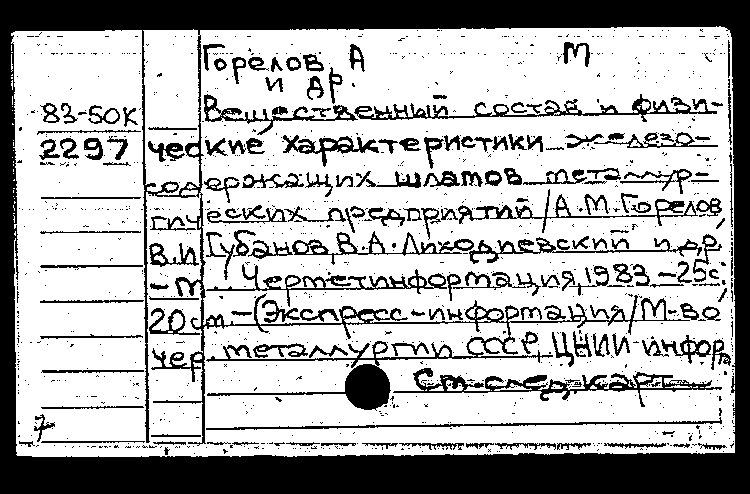 Горелов А М
и др.
83-50К Вещественный состав и физи-
2297 ческие характеристики железо-
содержащих шламов металлур-
гических предприятий/А.М.Горелов,
В.И.Губанов, В.А.Лиходиевский и др.
-М. Черметинформация, 1983 -25с.,
20см.-(Экспресс-информация/М-во
чер.металлургии СССР, ЦНИИ информ.
См.след.карт.
7